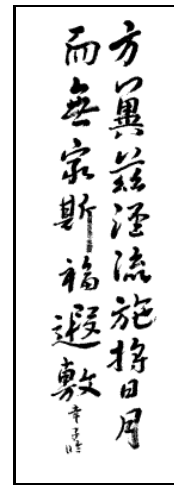 方冀茲涇流施將日月
而無窮斯福遐敷